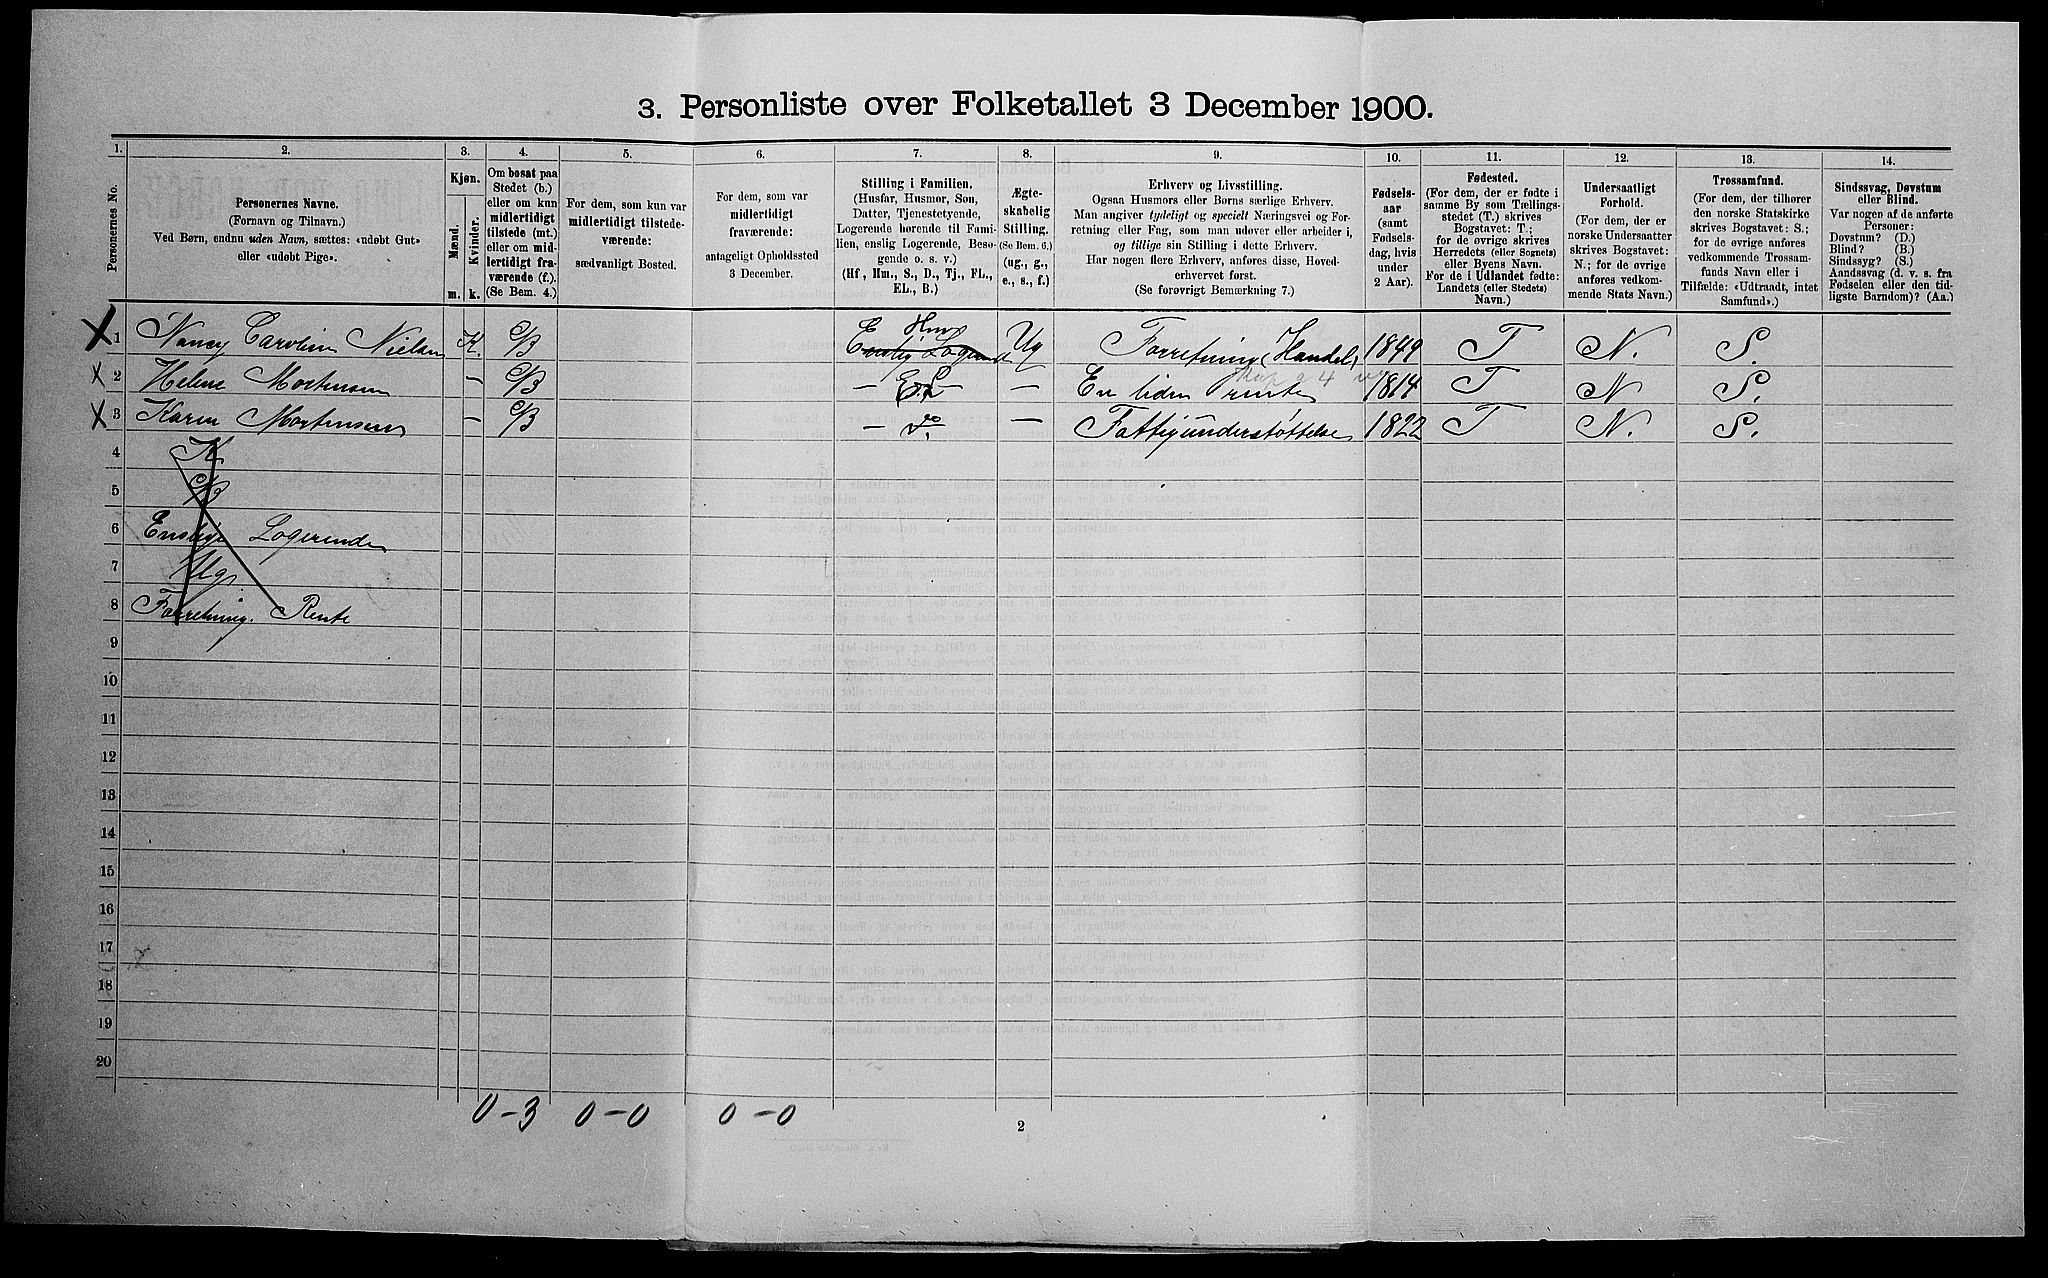 3. Personliste over Folketallet 3 December 1900.
1. 2. 3. 4. 5. 6. 7. 8. 9. 10. 11. 12. 13. 14.
Personernes No.
Personernes Navne.
(Fornavn og Tilnavn.)
Ved Børn, endnu uden Navn, sættes: «udøbt Gut»
eller «udøbt Pige».
Kjøn.
Mænd. Kvinder.
m. k.
Om bosat paa
Stedet (b.)
eller om kun
midlertidigt
tilstede (mt.)
eller om mid-
lertidigt fra-
værende (f.).
(Se Bem. 4.)
For dem, som kun var
midlertidigt tilstede-
værende:
sædvanligt Bosted.
For dem, som var
midlertidigt
fraværende:
antageligt Opholdssted
3 December.
Stilling i Familien.
(Husfar, Husmor, Søn,
Datter, Tjenestetyende,
Logerende hørende til Fami-
lien, enslig Logerende, Besø-
gende o. s. v.)
(Hf., Hm., S., D., Tj., FL.,
EL., B.)
Ægte-
skabelig
Stilling.
(Se Bem. 6.)
(ug., g.,
e., s., f.)
Erhverv og Livsstilling.
Ogsaa Husmors eller Børns særlige Erhverv.
Man angiver tydeligt og specielt Næringsvei og For-
retning eller Fag, som man udøver eller arbeider i,
og tillige sin Stilling i dette Erhverv.
Har nogen flere Erhverv, anføres disse, Hoved-
erhvervet først.
(Se forøvrigt Bemærkning 7.)
Fødsels-
aar
(samt
Fødsels-
dag, hvis
under
2 Aar).
Fødested.
(For dem, der er fødte i
samme By som Tællings-
stedet (T.) skrives
Bogstavet: T.;
for de øvrige skrives
Herredets (eller Sognets)
eller Byens Navn.
For de i Udlandet fødte:
Landets (eller Stedets)
Navn.)
Undersaatligt
Forhold.
(For dem, der er
norske Undersaatter
skrives Bogstavet:
N.; for de øvrige
anføres vedkom-
mende Stats Navn.)
Trossamfund.
(For dem, der tilhører
den norske Statskirke
skrives Bogstavet: S.;
for de øvrige anføres
vedkommende Trossam-
funds Navn eller i
Tilfælde: «Udtraadt, intet
Samfund».)
Sindssvag, Døvstum
eller Blind.
Var nogen af de anførte
Personer:
Døvstum? (D.)
Blind? (B.)
Sindssyg? (S.)
Aandssvag (d. v. s. fra
Fødselen eller den tid-
ligste Barndom)? (Aa.)
Hm
1 Nancy Caroline Nielsen K. B Enslig Logerende Ug Forretning (Handel) 1849 T N. S.
2 Helene Mortensen — B — E.L — — En liden Rente 1814 T N S.
3 Karen Mortensen — B — do. — Fattigunderstøttelse 1822 T N. S.
4 K
5 B
6 Enslige Logerende
7 Ug.
8 Forretning. Rente
9
10
11
12
13
14
15
16
17
18
19
20
0-3 0-0 0-0
2